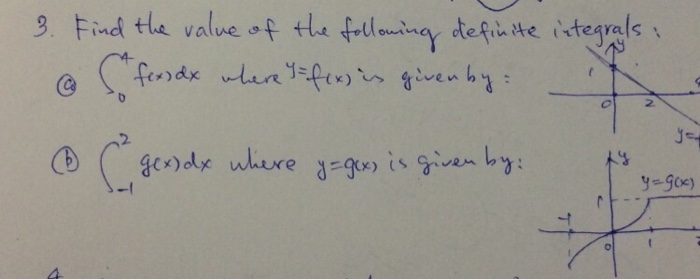 3. Find the value of the following definite integrals:
ⓐ ∫₀⁴ f(x)dx where y=f(x) is given by:
y
1
0 2
y=
ⓑ ∫₋₁² g(x)dx where y=g(x) is given by:
y
y=g(x)
1
-1
0 1